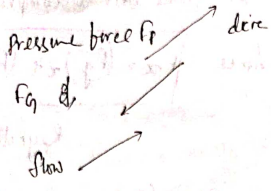 Pressure force Fp
drive
Fg
flow